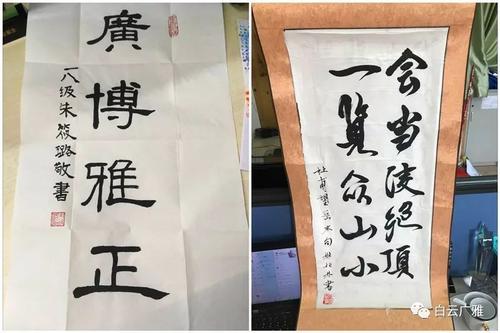 廣博雅正
一八级朱筱璐敬書
会当凌绝顶
一览众山小
杜甫望岳末句
書
白云广雅